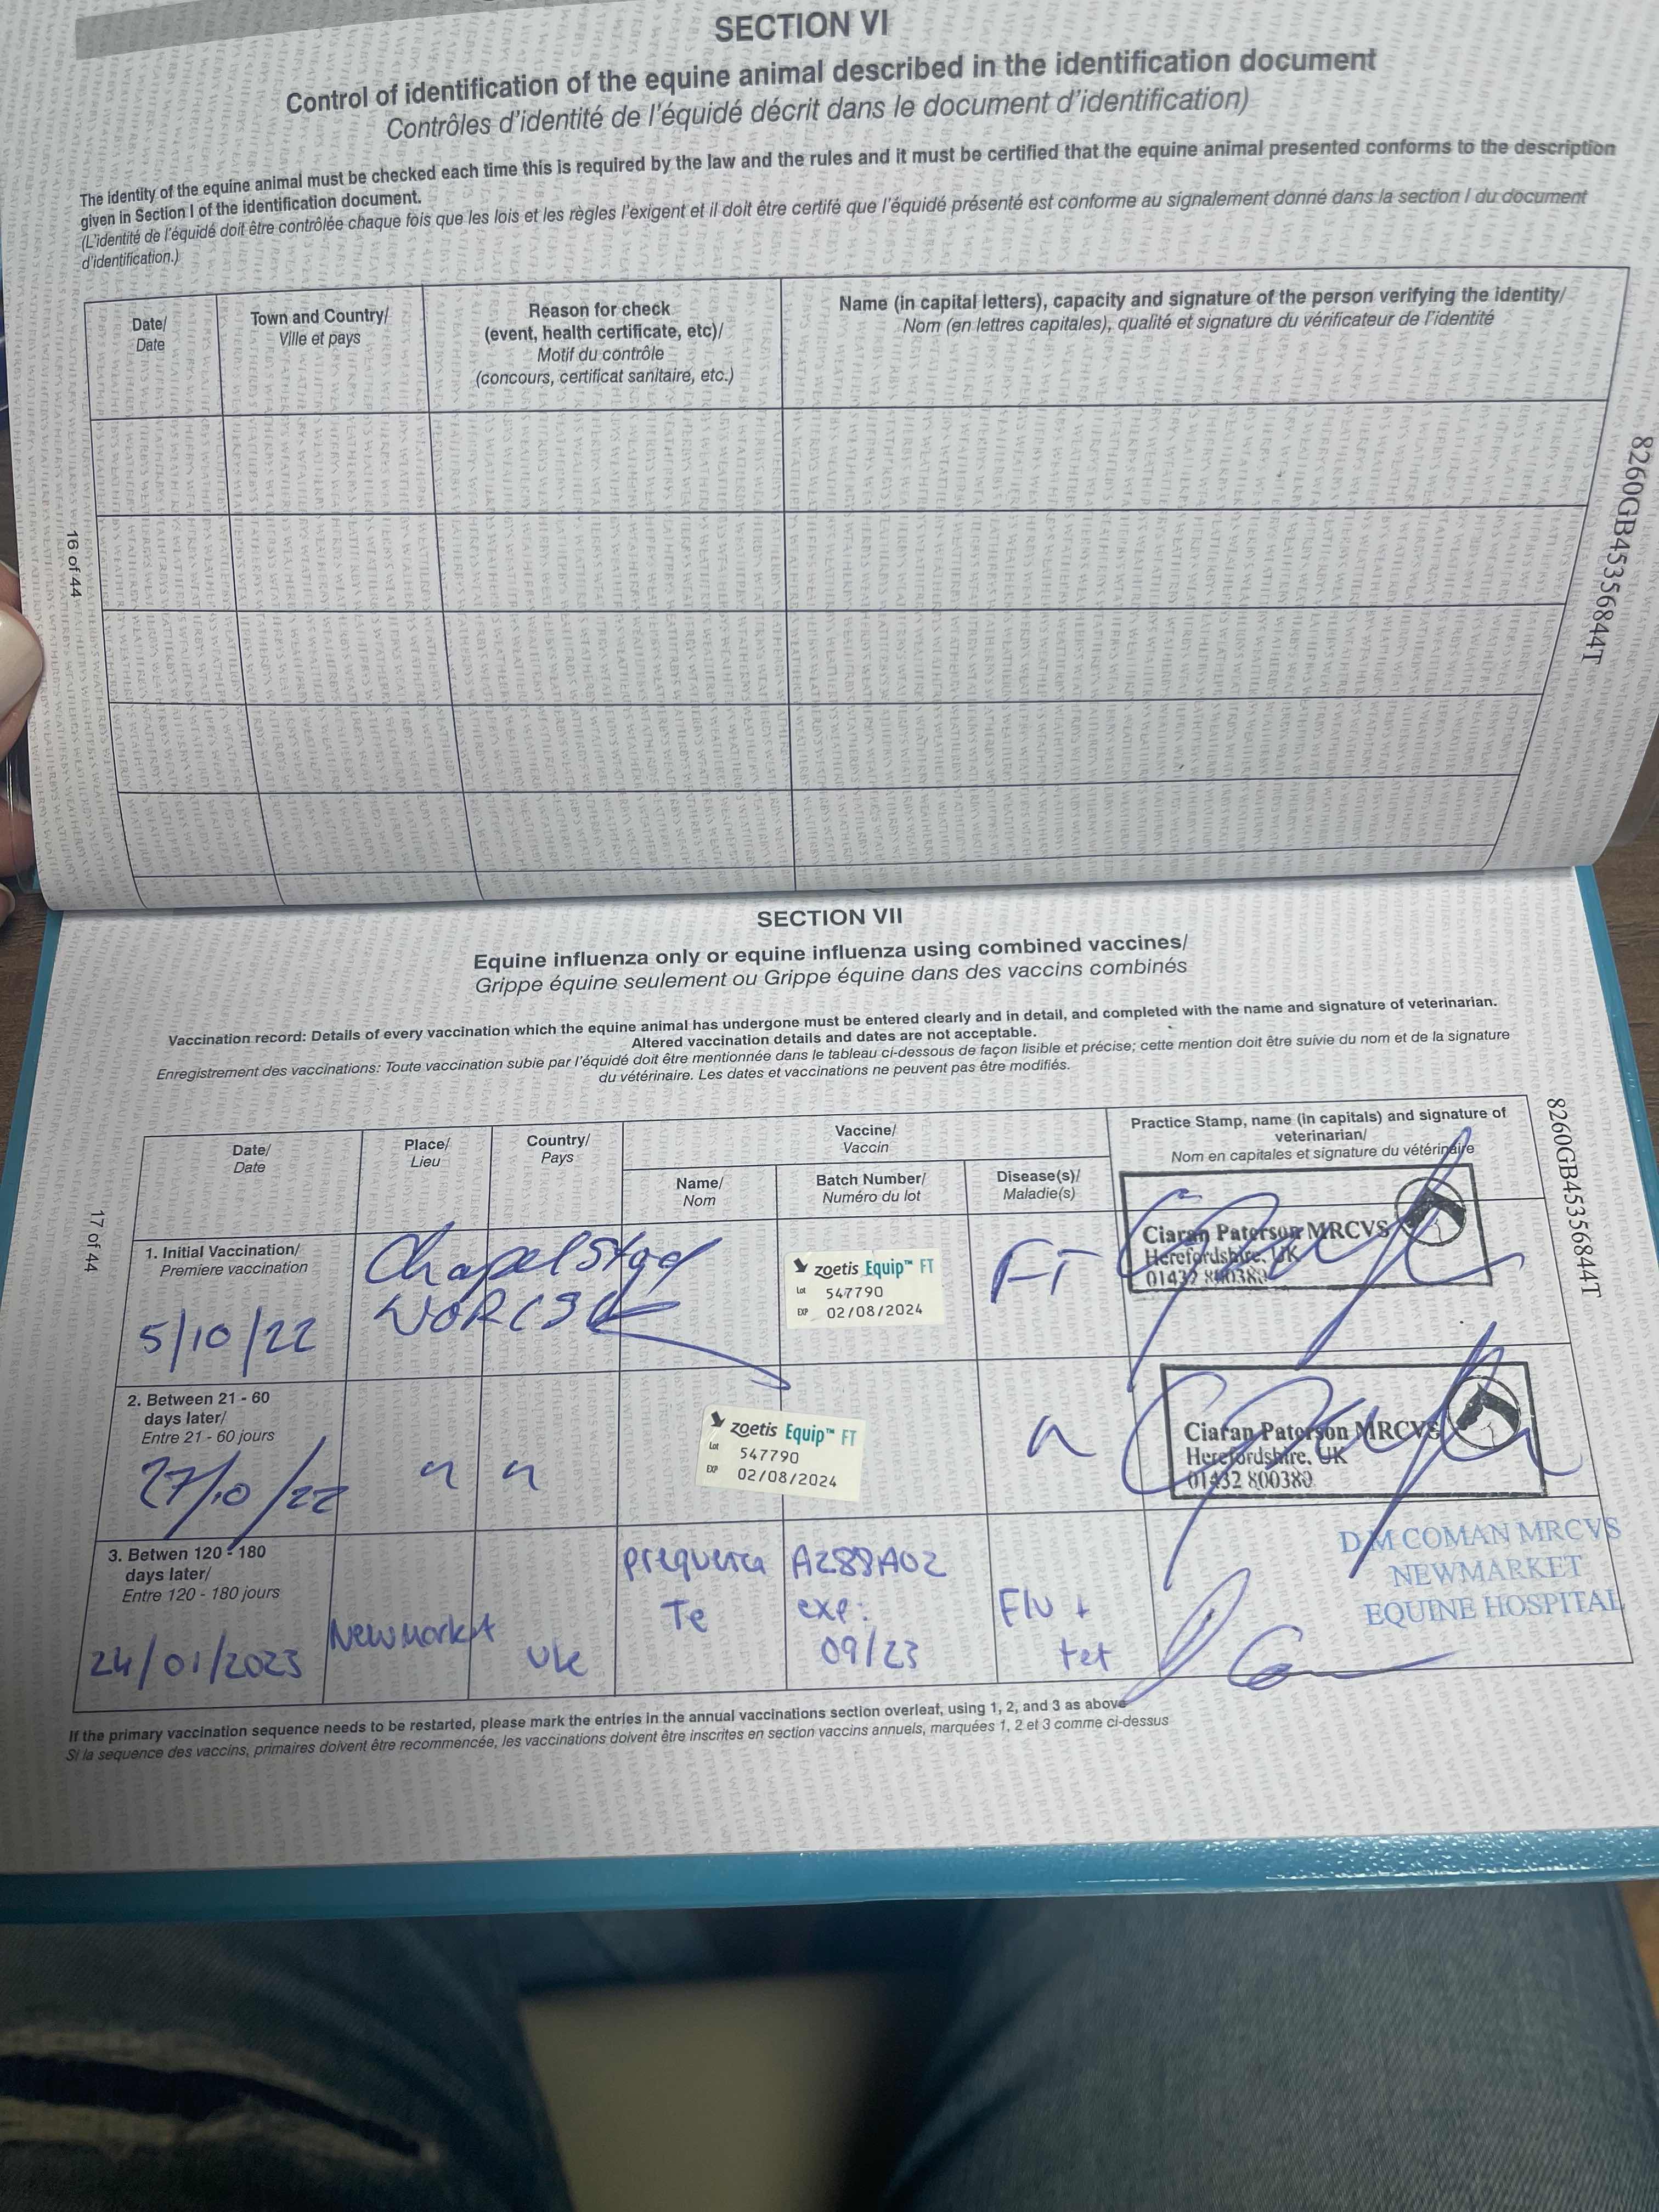 SECTION VI
Control of identification of the equine animal described in the identification document
Contrôles d'identité de l'équidé décrit dans le document d'identification)
The identity of the equine animal must be checked each time this is required by the law and the rules and it must be certified that the equine animal presented conforms to the description
given in Section I of the identification document.
(L'identité de l'équidé doit être contrôlée chaque fois que les lois et les règles l'exigent et il doit être certifé que l'équidé présenté est conforme au signalement donné dans la section I du document
d'identification.)
Date/
Date
Town and Country/
Ville et pays
Reason for check
(event, health certificate, etc)/
Motif du contrôle
(concours, certificat sanitaire, etc.)
Name (in capital letters), capacity and signature of the person verifying the identity/
Nom (en lettres capitales), qualité et signature du vérificateur de l'identité
16 of 44
8260GB45356844T
SECTION VII
Equine influenza only or equine influenza using combined vaccines/
Grippe équine seulement ou Grippe équine dans des vaccins combinés
Vaccination record: Details of every vaccination which the equine animal has undergone must be entered clearly and in detail, and completed with the name and signature of veterinarian.
Altered vaccination details and dates are not acceptable.
Enregistrement des vaccinations: Toute vaccination subie par l'équidé doit être mentionnée dans le tableau ci-dessous de façon lisible et précise; cette mention doit être suivie du nom et de la signature
du vétérinaire. Les dates et vaccinations ne peuvent pas être modifiés.
Date/
Date
Place/
Lieu
Country/
Pays
Vaccine/
Vaccin
Name/
Nom
Batch Number/
Numéro du lot
Disease(s)/
Maladie(s)
Practice Stamp, name (in capitals) and signature of
veterinarian/
Nom en capitales et signature du vétérinaire
17 of 44
8260GB45356844T
1. Initial Vaccination/
Premiere vaccination
5/10/22
Chapel Stud
zoetis Equip™ FT
Lot 547790
EXP 02/08/2024
FT
Ciaran Paterson MRCVS
Herefordshire, UK
01432 800380
2. Between 21 - 60
days later/
Entre 21 - 60 jours
27/10/22
zoetis Equip™ FT
Lot 547790
EXP 02/08/2024
Ciaran Paterson MRCVS
Herefordshire, UK
01432 800380
3. Betwen 120 - 180
days later/
Entre 120 - 180 jours
24/01/2023
Newmarket
UK
prequenza
Te
A288A02
exp:
09/23
Flu +
tet
D M COMAN MRCVS
NEWMARKET
EQUINE HOSPITAL
If the primary vaccination sequence needs to be restarted, please mark the entries in the annual vaccinations section overleaf, using 1, 2, and 3 as above
Si la sequence des vaccins, primaires doivent être recommencée, les vaccinations doivent être inscrites en section vaccins annuels, marquées 1, 2 et 3 comme ci-dessus